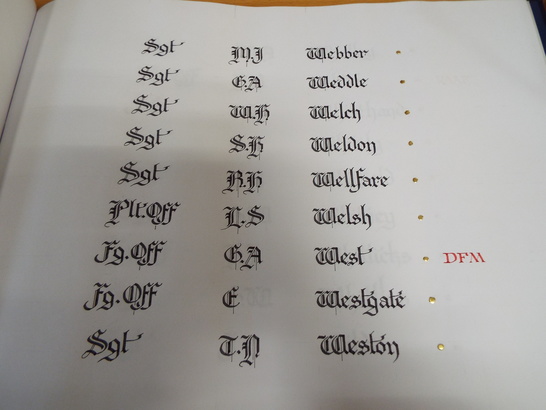 Sgt M.J Webber
Sgt G.A Weddle
Sgt W.H Welch
Sgt S.H Weldon
Sgt R.H Wellfare
Plt.Off L.S Welsh
Fg.Off G.A West DFM
Fg.Off E Westgate
Sgt T.N Weston